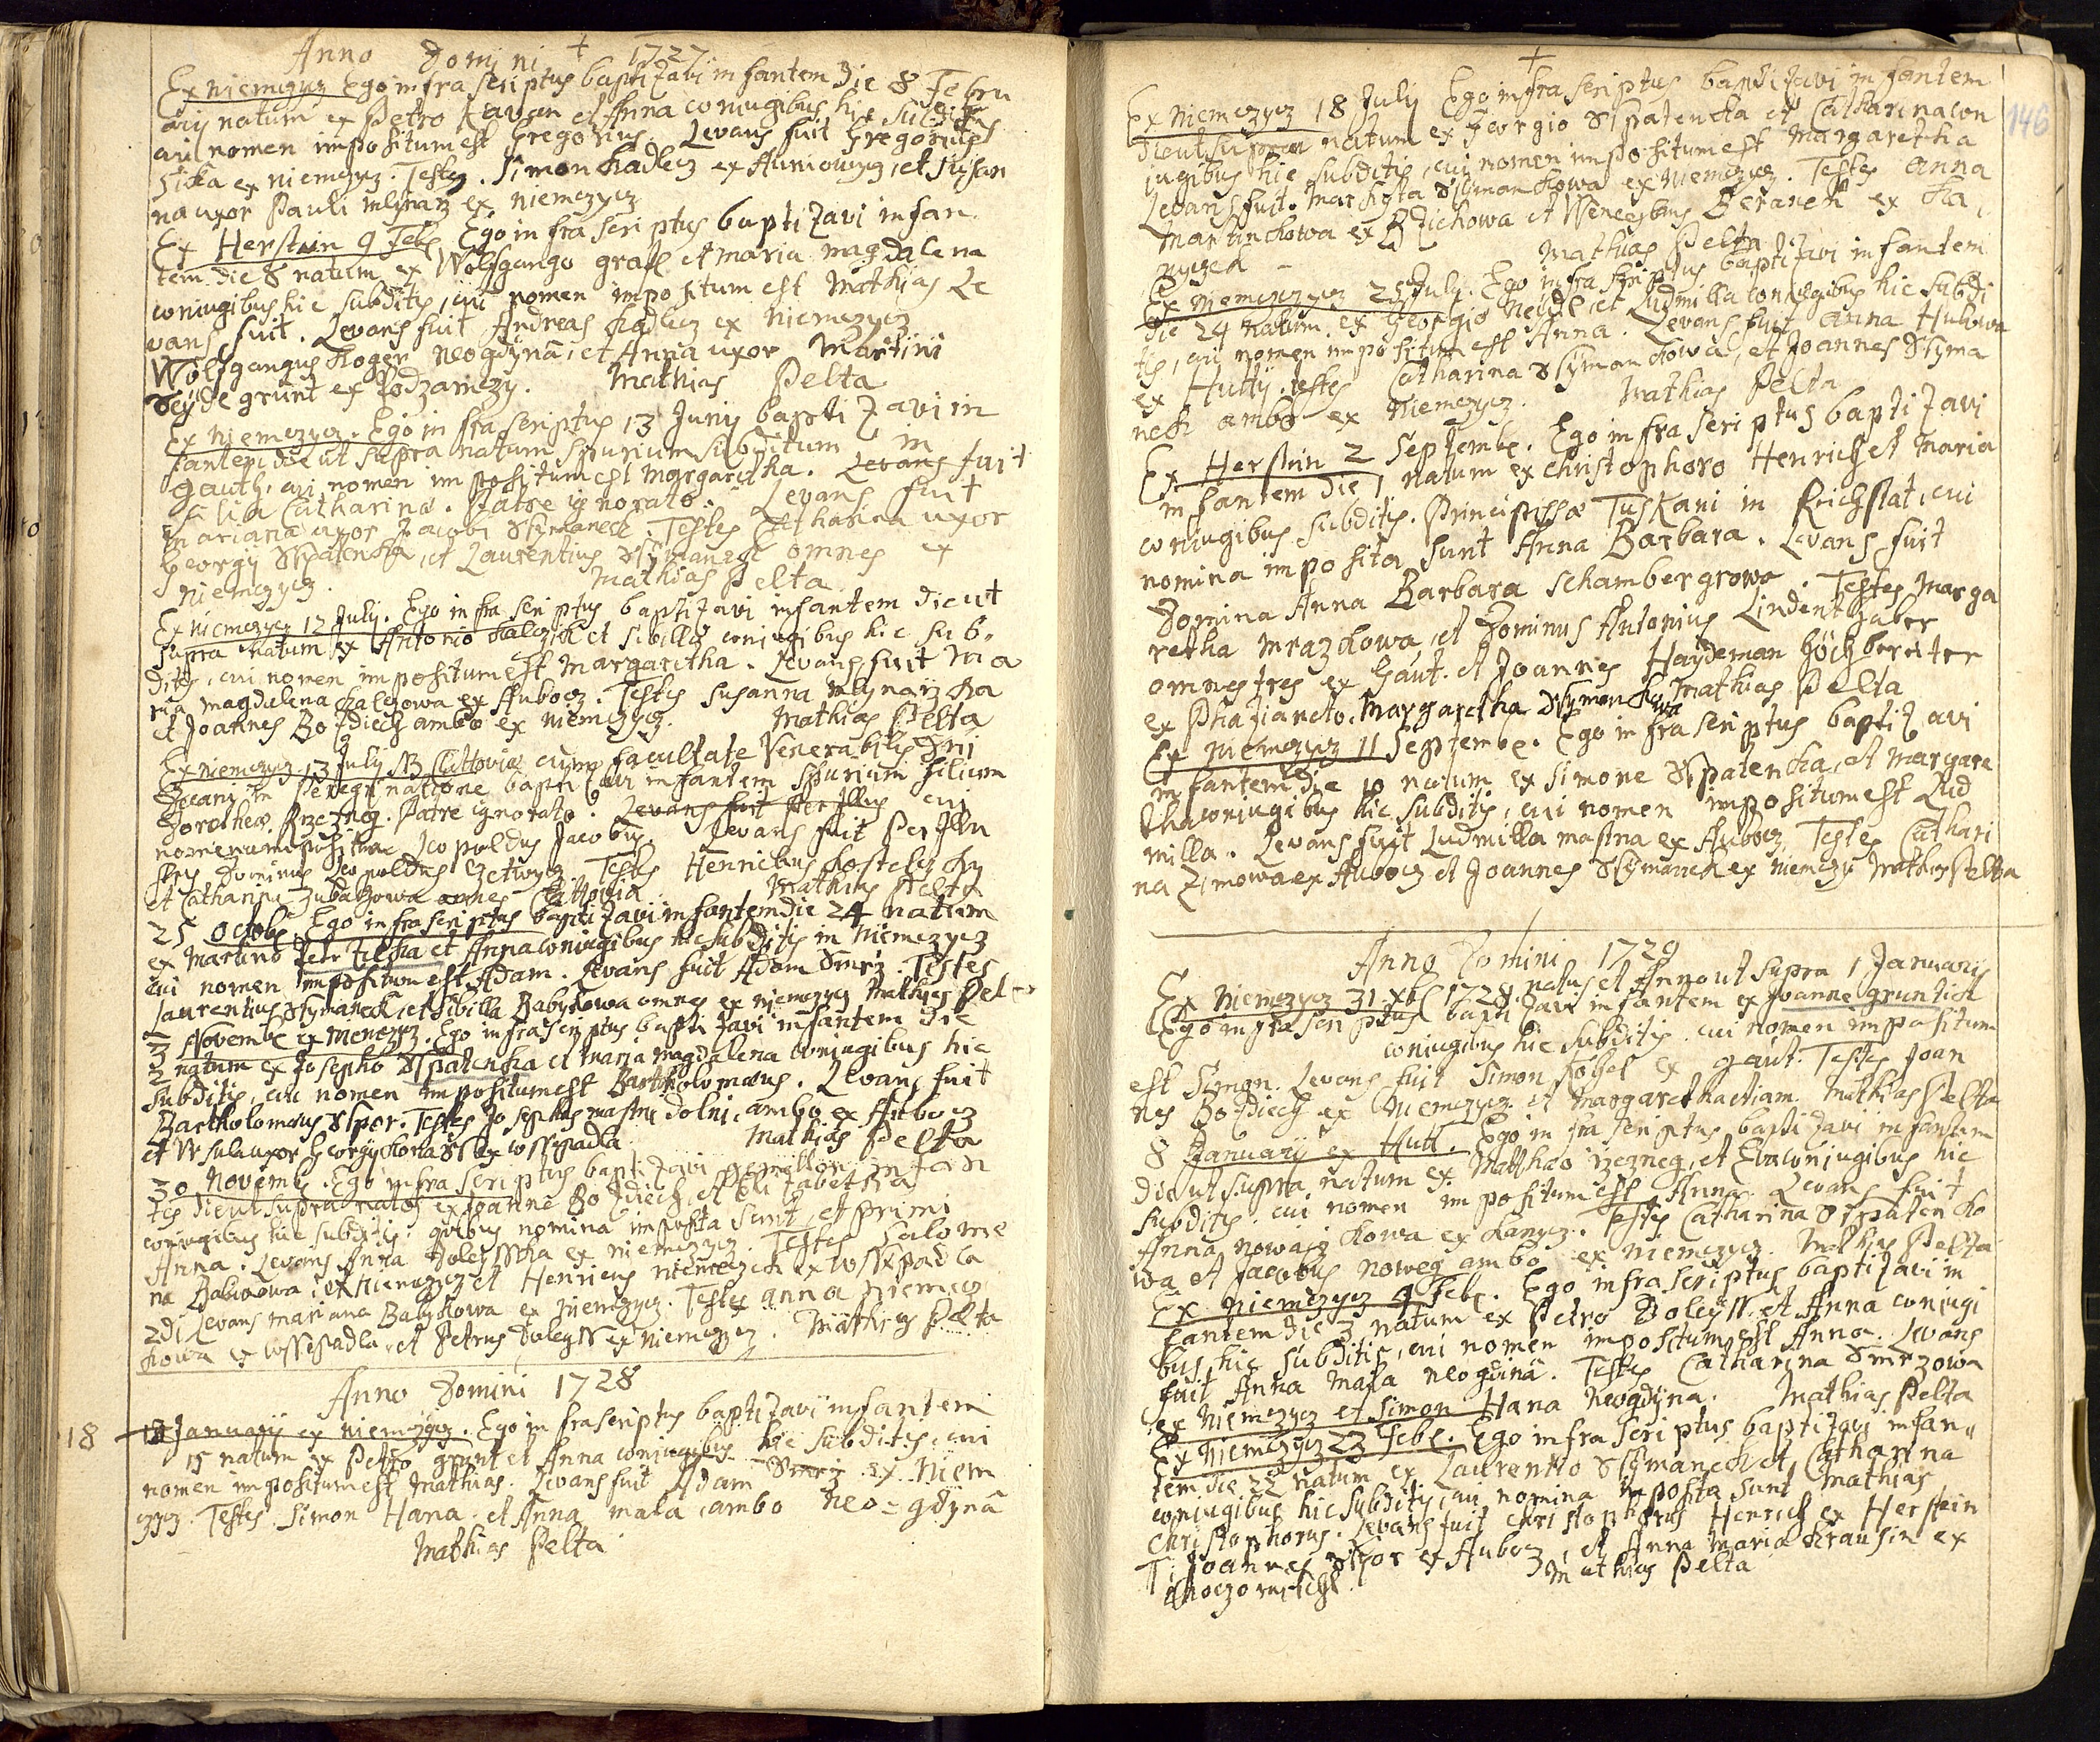 Anno Domini + 1727
Ex Niemczycz Ego infra scriptus baptizavi infantem die 8 Febru
arij natum ex Petro et Anna coniugibus hic subditis
cui nomen impositum est Gregorius. Levans fuit Gregorius
ex Niemczycz. Testes. Simon Kadlecz ex et Susan
na uxor Pauli Mlynarz ex Niemczycz
Ex Herstein 9 Feb. Ego infra scriptus baptizavi infan
tem die 8 natum ex Wolfgango et Maria Magdalena
coniugibus hic subditis, cui nomen impositum est Mathias Le
vans fuit. Levans fuit Andreas Kadlecz ex Niemczycz
Wolfgangus Koger Neogdyna, et Anna uxor Martini
grunt ex Podzamczy. Mathias Pelta
Ex Niemczycz. Ego infra scriptus 13 Junij baptizavi in
fantem die ut supra natum spurium subditum in
Gauth, cui nomen impositum est Margaretha. Levans fuit
filia Catharina. Patre ignorato. Levans fuit
Mariana uxor Jacobi Sskymaneck. Testes Catharina uxor
Georgij Sspatenka, et Laurentius Sskymanek omnes ex
Niemczycz. Mathias Pelta
Ex Niemczycz 12 July. Ego infra scriptus baptizavi infantem die ut
supra natum ex Antonio et Sibilla coniugibus hic sub
ditis, cui nomen impositum est Margaretha. Levans fuit Ma
ria Magdalena ex Hubocz. Testes Susanna Mlynarzka
et Joannes Bozdiech ambo ex Niemczycz. Mathias Pelta
Ex Niemczycz 13 July NB Cuttovia cum facultate Venerabilis Dni
Decani in peregrinatione baptizavi infantem spurium filium
Dorotheae Rzezneg. Patre ignorato. Levans fuit Per Illus cui
nomen impositum Leopoldus Jacobus Levans fuit Per Illu
stris Dominus Leopoldus Testes Henricus Kosteleczky
et Catharina omnes Cuttovia Mathias Pelta
25 Octob. Ego infra scriptus baptizavi infantem die 24 natum
ex Martino Petrzilka et Anna coniugibus hic subditis in Niemczycz
cui nomen impositum est Adam. Levans fuit Adam Smrz. Testes
Laurentius Sskymaneck, et Sibilla Babykowa omnes ex Niemczycz Mathias Pelta
3 Novemb ex Niemczycz. Ego infra scriptus baptizavi infantem die
2 natum ex Josepho Sspatenka et Maria Magdalena coniugibus hic
subditis, cui nomen impositum est Bartholomaeus. Levans fuit
Bartholomaeus Stpor. Testes Josephus Mastny dolni, ambo ex Hubocz
et Ursula uxor Georgij ex Wssepadla Mathias Pelta
30 Novemb. Ego infra scriptus baptizavi gemellos infan
tes die ut supra natos ex Joanne Bozdiech, et Elizabetha
coniugibus hic subditis: quibus nomina imposita sunt, et primi
Anna. Levans Anna Doleysska ex Niemczycz. Testes Salome
na Babikowa ex Niemczycz et Henricus Niemeczek ex Wssepadla
2di Levans Mariana Babykowa ex Niemczycz. Testes Anna Niemecz
kowa ex Wssepadla, et Petrus Doleyss ex Niemczycz. Mathias Pelta
Anno Domini 1728
18 Januarij ex Niemczycz. Ego infra scriptus baptizavi infantem
15 natum ex Petro grunt et Anna coniugibus hic subditis, cui
nomen impositum est Mathias. Levans fuit Adam Smrz ex Niem
czycz. Testes Simon Hana et Anna Mala, ambo Neo=gdyna
Mathias Pelta
+
146
Ex Niemczycz 18 July Ego infra scriptus baptizavi infantem
die ut supra natum ex Georgio Sspatenka et Catharina con
iugibus hic subditis, cui nomen impositum est Margaretha
Levans fuit. Markyta Sskymankowa ex Niemczycz. Testes Anna
Martinkowa ex Bzichowa et Wenceslaus Beranek ex Ka
nyczek - Mathias Pelta
Ex Niemczycz 25 July. Ego infra scriptus baptizavi infantem
die 24 natum ex Georgio Neidl, et Ludmilla coniugibus hic subdi
tis, cui nomen impositum est Anna. Levans fuit Anna
ex Hutty. testes Catharina Sskymankowa, et Joannes Sskyma
nek ambo ex Niemczycz. Mathias Pelta
Ex Herstein 2 Septemb. Ego infra scriptus baptizavi
infantem die 1 natum ex Christophoro Henrich et Maria
coniugibus subditis. Principissae Tuskani in Reichstat, cui
nomina imposita sunt Anna Barbara. Levans fuit
Domina Anna Barbara Schambergrowa. Testes Marga
retha Mrazkowa, et Dominus Antonius Lindenthaber
omnes tres ex Gaut. et Joannes Haydeman
ex Phazianeto. Margaretha Sskymankowa Mathias Pelta
Ex Niemczycz 11 Septembe. Ego infra scriptus baptizavi
infantem die 10 natum ex Simone Sspatenka, et Margare
tha coniugibus hic subditis, cui nomen impositum est Lud
milla. Levans fuit Ludmilla Mastna ex Hubocz, Testes Cathari
na Zimowa ex Hubocz et Joannes Sskymanek ex Niemczy Mathias Pelta
Anno Domini 1729
Ex Niemczycz 31 Xbr 1728 natus et Anno ut supra 1 Januarij
Ego infra scriptus baptizavi infantem ex Joanne Gruntick
coniugibus hic subditis, cui nomen impositum
est Simon. Levans fuit Simon ex Gaut. Testes Joan
nes Bozdiech ex Niemczycz et Margaretha etiam. Mathias Pelta
8 Januarij ex Hutt. Ego infra scriptus baptizavi infantem
die ut supra natum ex Matthaeo rzezneg, et Eva coniugibus hic
subditis. cui nomen impositum est Anna. Levans fuit
Anna Nowakowa ex Kanycz. Testes Catharina Sspatenko
wa et Jacobus Noweg ambo ex Niemczycz. Mathias Pelta
Ex Niemczycz 4 Feb. Ego infra scriptus baptizavi in
fantem die 3 natum ex Petro Doleyss. et Anna coniugi
bus hic subditis, cui nomen impositum est Anna. Levans
fuit Anna Mala Neogdina. Testes Catharina Smrzowa
ex Niemczycz et Simon Hana Neogdyna. Mathias Pelta
Ex Niemczycz 23 Feb. Ego infra scriptus baptizavi infan
tem die 22 natum ex Laurentio Sskymaneck et Catharina
coniugibus hic subditis, cui nomina imposita sunt Mathias
Christophorus. Levans fuit Christophorus Henrich ex Herstein
T. Joannes Stpor ex Hubocz, et Anna Maria Krausin ex
Mathias Pelta